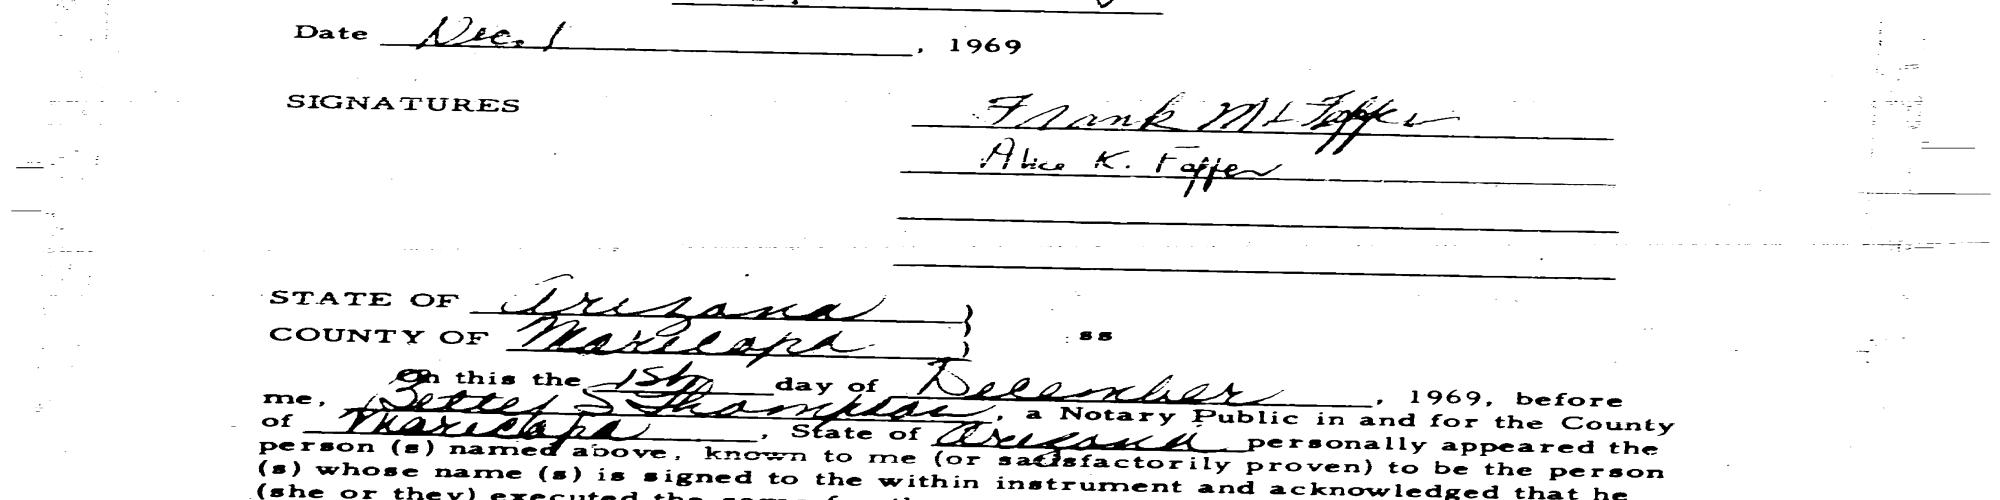 Date Dec. 1, 1969
SIGNATURES Frank M
Alice K. Foffer
STATE OF Arizona }
COUNTY OF Maricopa } ss
On this the 1st day of December, 1969, before
me, S Thompson, a Notary Public in and for the County
of Maricopa, State of Arizona personally appeared the
person (s) named above, known to me (or satisfactorily proven) to be the person
(s) whose name (s) is signed to the within instrument and acknowledged that he
(she or they) executed the same for the